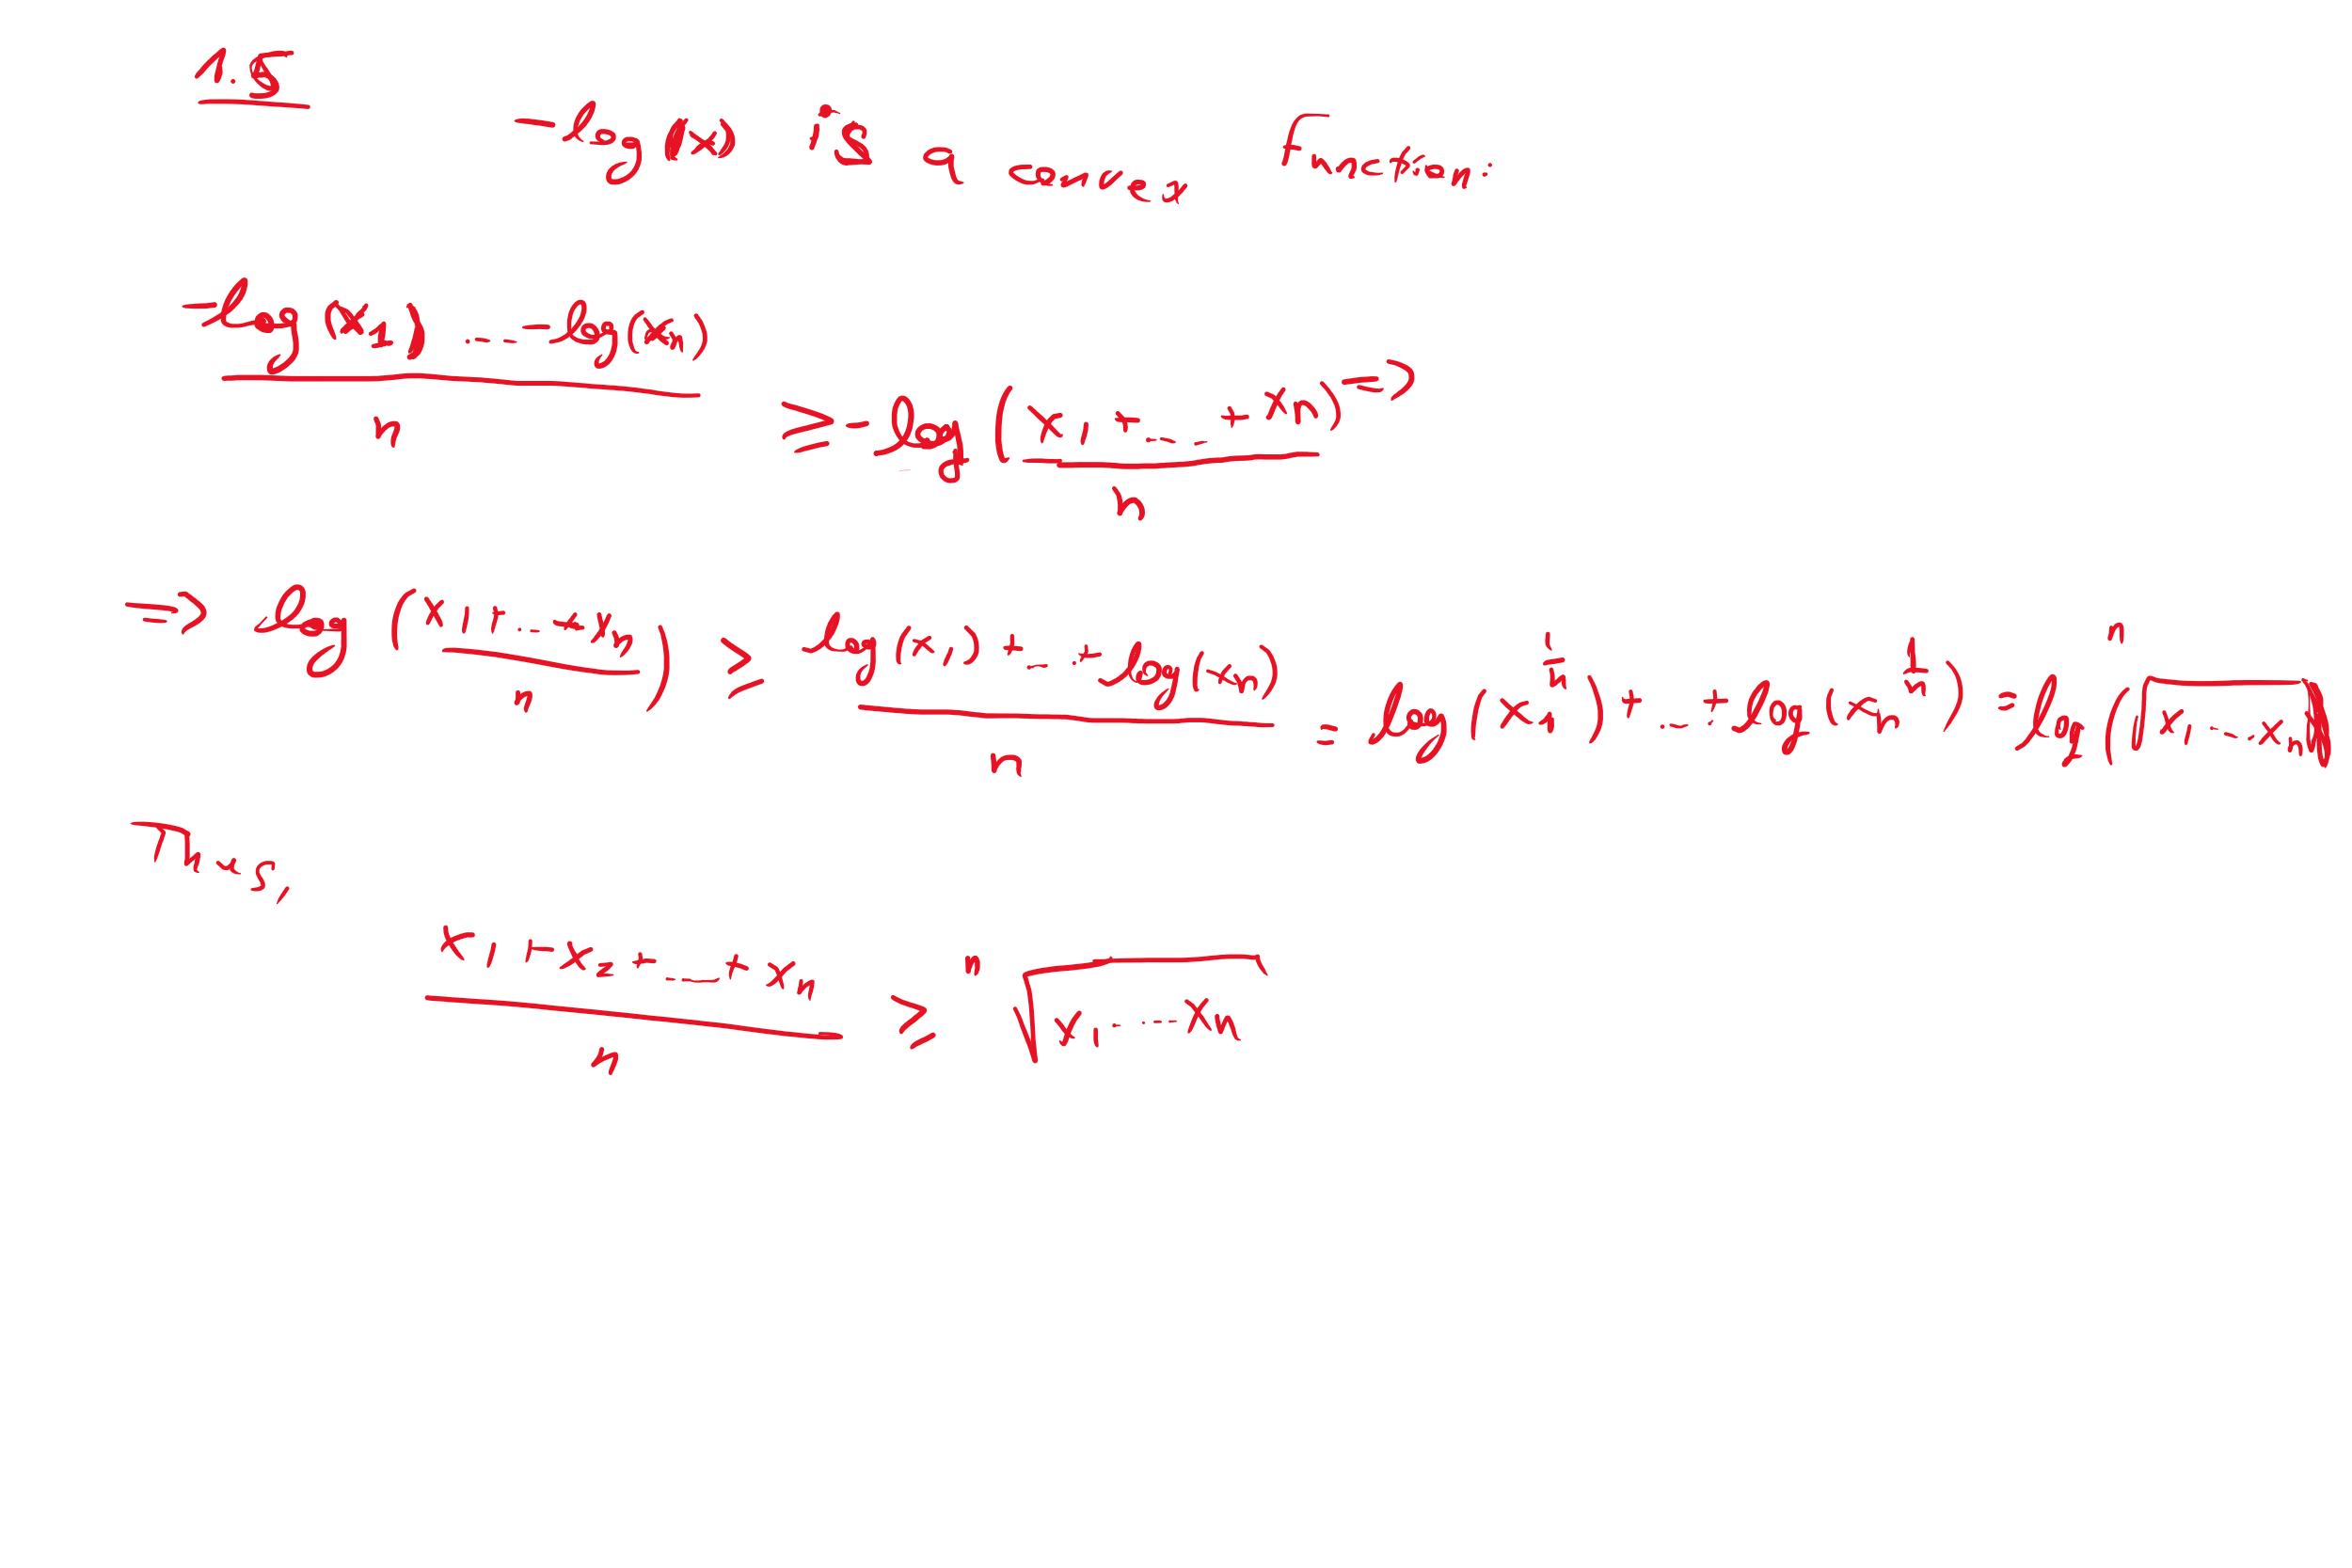 1.5
-log(x) is a convex function:
(-log(x₁) ... -log(xₙ))/n ≥ -log((x₁+...+xₙ)/n) =>
=> log((x₁+...+xₙ)/n) ≥ (log(x₁)+...+log(xₙ))/n = log(x₁^(1/n))+...+log(xₙ^(1/n)) = log(ⁿ√(x₁...xₙ))
Thus,
(x₁+x₂+...+xₙ)/n ≥ ⁿ√(x₁...xₙ)